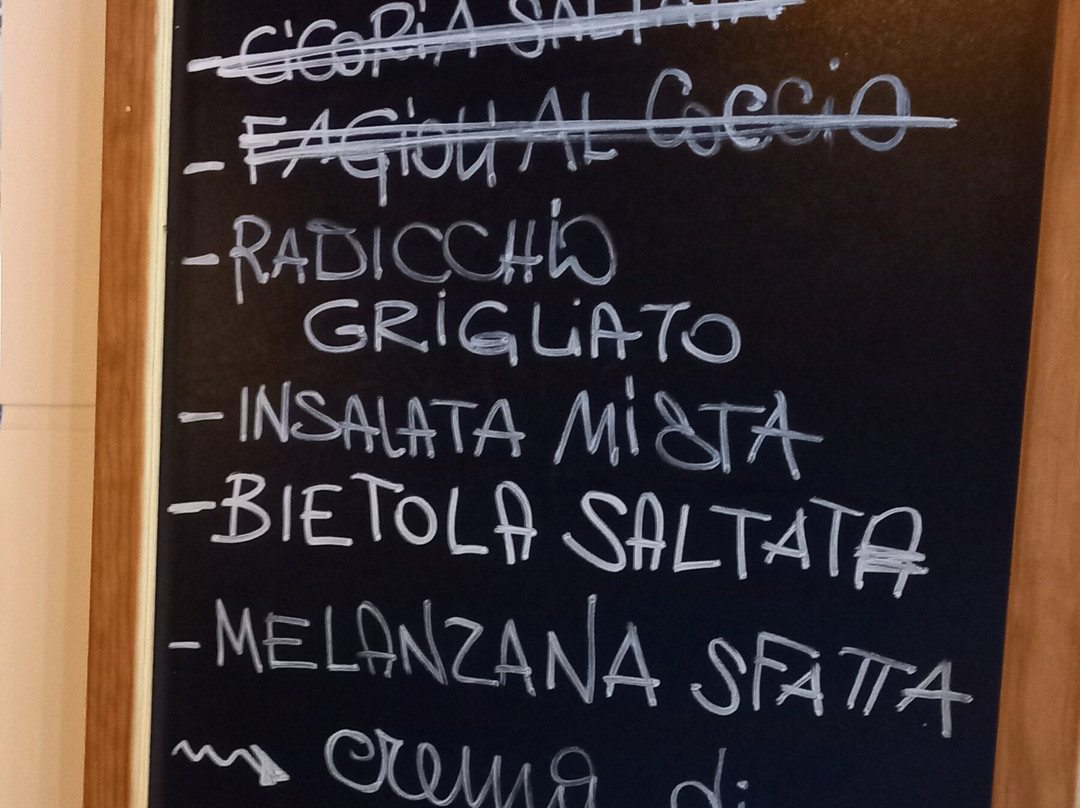 - CiCORiA SALTATA
- FAGiOLi AL CoCCiO
- RADICCHiO
GRiGLiATO
- INSALATA MiSTA
- BIETOLA SALTATA
- MELANZANA SFATTA
crema di